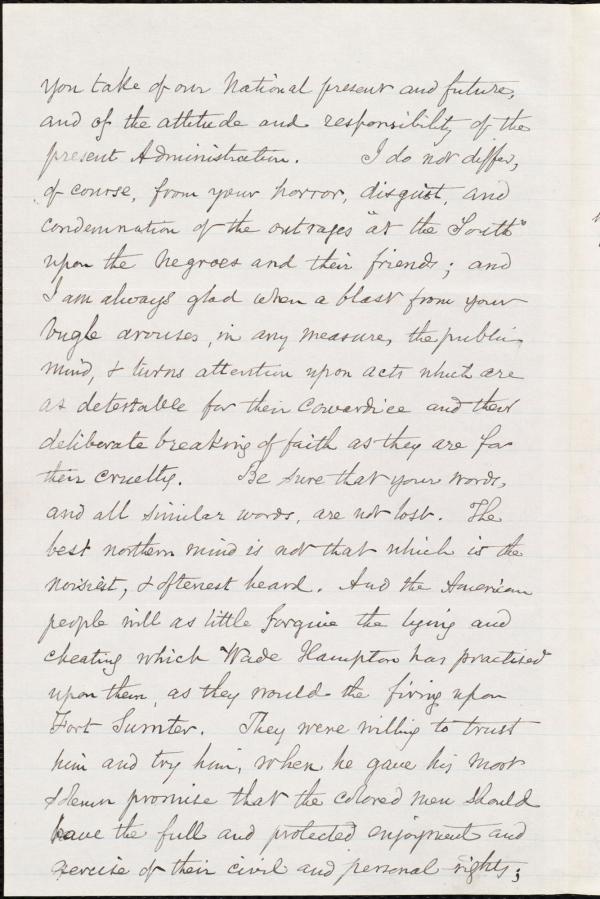 you take of our National present and future,
and of the attitude and responsibility of the
present Administration. I do not differ,
of course, from your horror, disgust, and
condemnation of the outrages "at the South"
upon the negroes and their friends; and
I am always glad when a blast from your
bugle arouses, in any measure, the public
mind, & turns attention upon acts which are
as detestable for their cowardice and their
deliberate breaking of faith as they are for
their cruelty. Be sure that your words,
and all similar words, are not lost. The
best northern mind is not that which is the
noisiest, & oftenest heard. And the American
people will as little forgive the lying and
cheating which Wade Hampton has practised
upon them, as they would the firing upon
Fort Sumter. They were willing to trust
him and try him, when he gave his most
solemn promise that the colored men should
have the full and protected enjoyment and
exercise of their civil and personal rights;